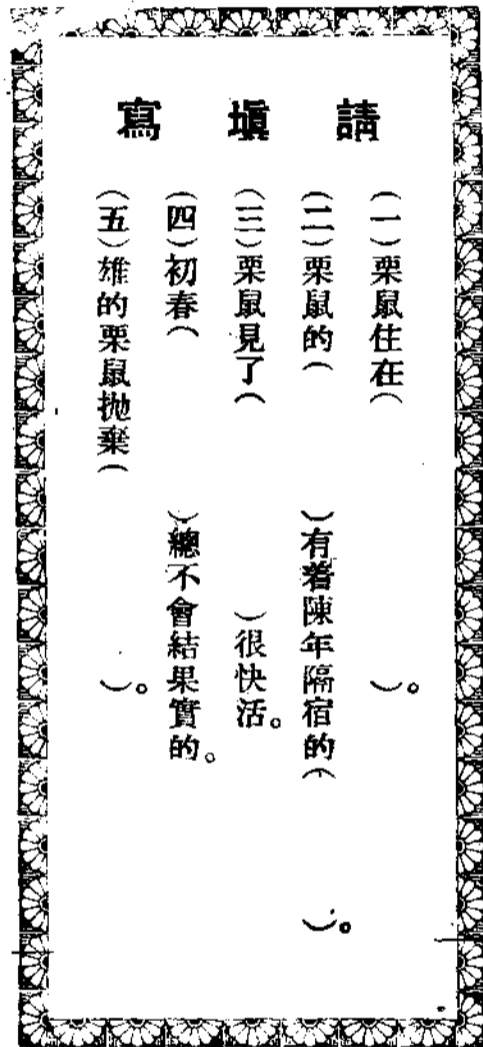 請填寫
(一)栗鼠住在( )。
(二)栗鼠的( )有着陳年隔宿的( )。
(三)栗鼠見了( )很快活。
(四)初春( )總不會結果實的。
(五)雄的栗鼠拋棄( )。